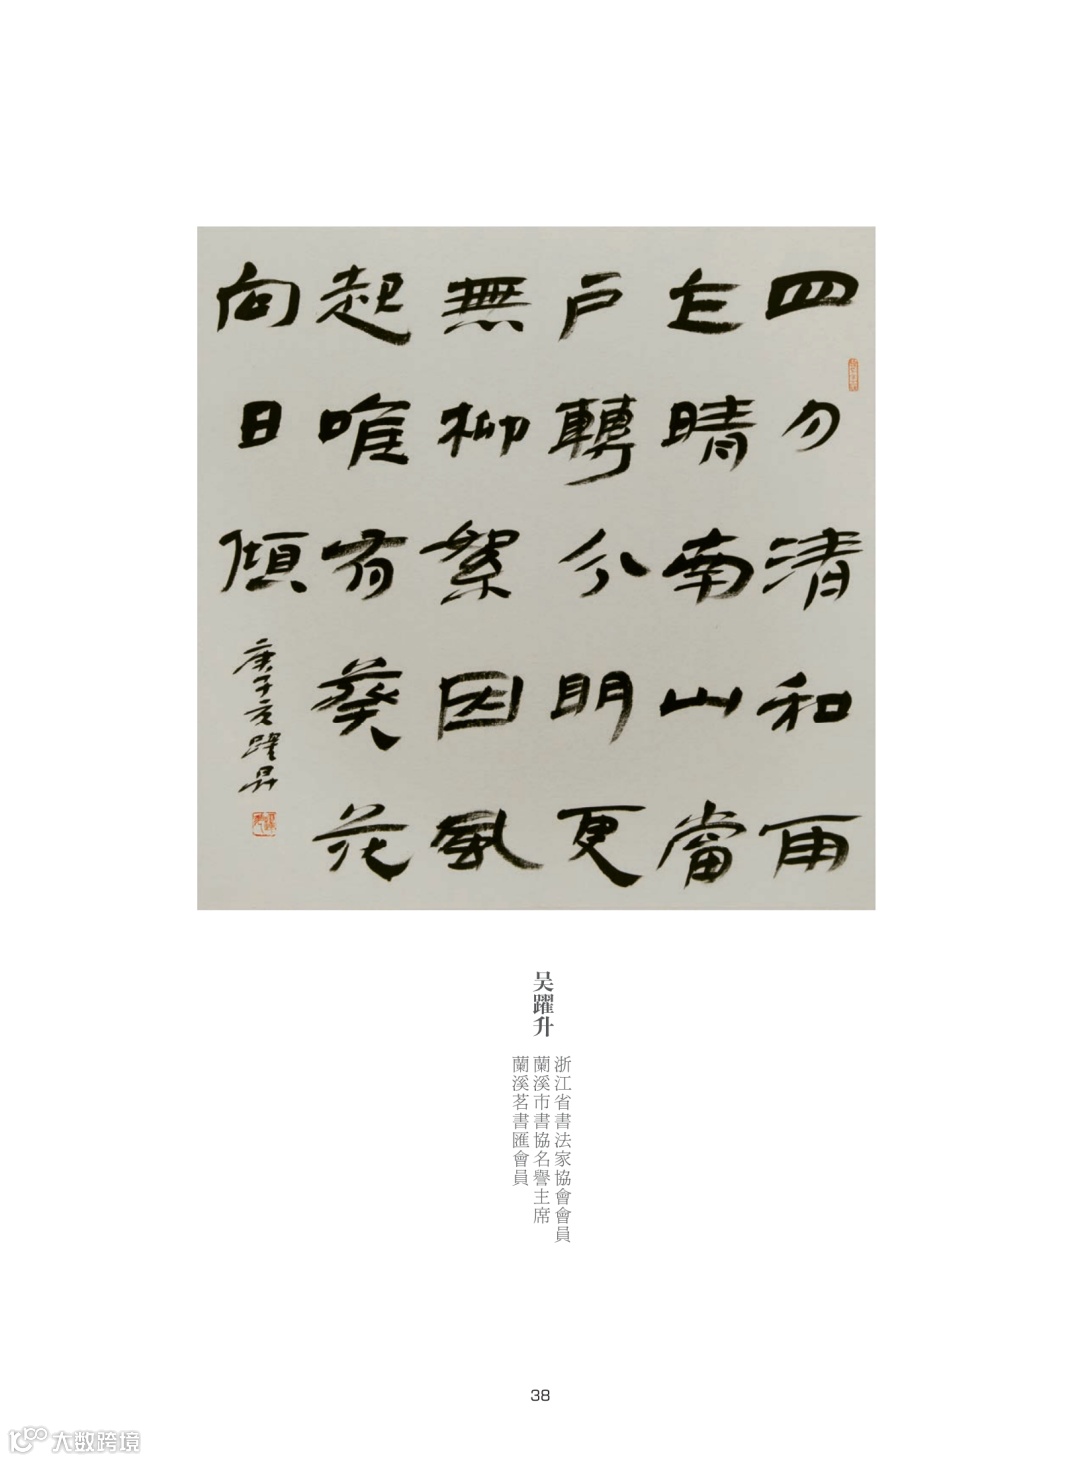 四月清和雨
乍晴南山當
戶轉分明更
無柳絮因風
起唯有葵花
向日傾
庚子夏躍昇
吴躍升
浙江省書法家協會會員
蘭溪市書協名譽主席
蘭溪茗書匯會員
38
大数跨境